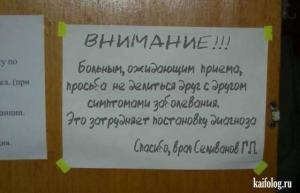 ВНИМАНИЕ!!!
Больным, ожидающим приема,
просьба не делиться друг с другом
симптомами заболевания.
Это затрудняет постановку диагноза
Спасибо, врач Селиванов Г.П.
му по
ез. (при
анции.
ия.
kaifolog.ru